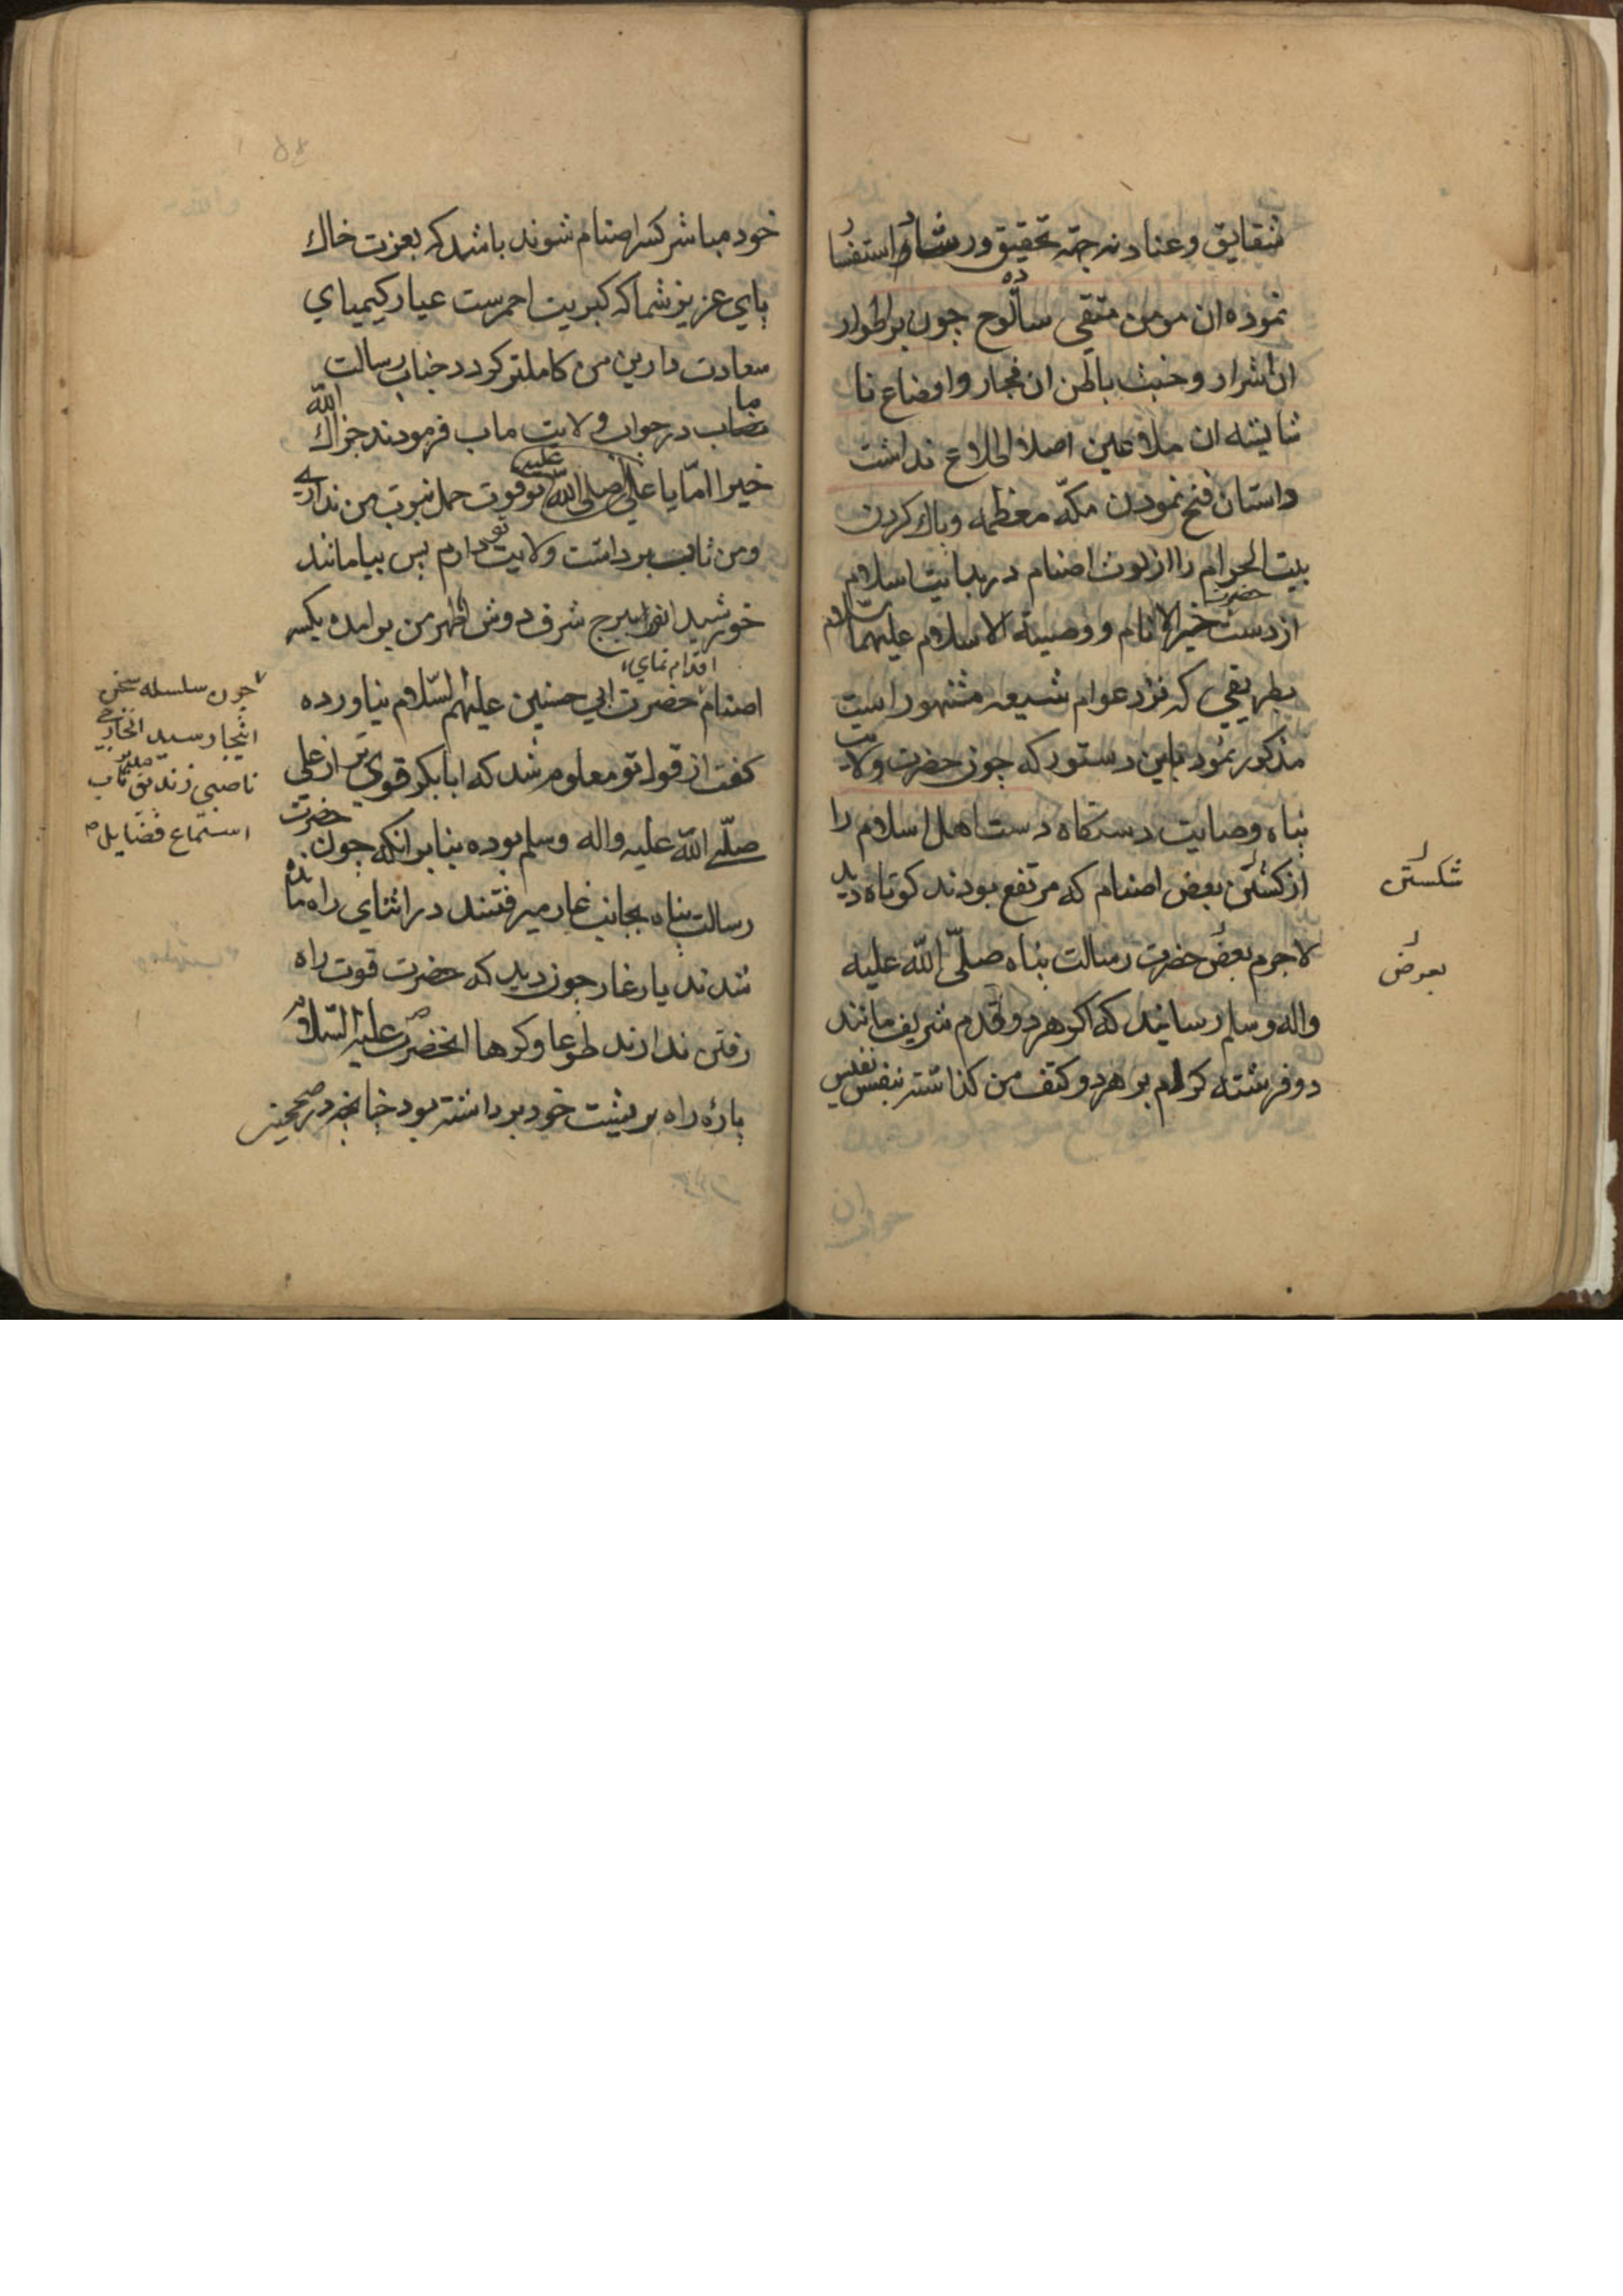 شقایق و عناد نه جهة تحقیق و رشاد استفسار
نموده ان مومن متقی ساده لوح چون بر اطوار
ان اشرار و خبث باطن ان فجار و اوضاع نا
شایسته ان ملاعین اصلا اطلاع نداشت
داستان فتح نمودن مکّه معظمه و پاك کردن
بیت الحرام را از لوث اصنام در بدایت اسلام
از دست حضرت خیر الانام و وصیه الاسلام علیهما السلام
بطریقی که نزد عوام شیعه مشهور است
مذکور نمود باین دستور که چون حضرت ولایت
پناه وصایت دستکاه دست اهل اسلام را
از کشتن بعض اصنام که مرتفع بودند کوتاه دید
لاجرم بعض حضرت رسالت پناه صلّی اللّه علیه
واله وسلم رسانید که اکر هر دو قدم شریف مانند
دو فرشته کرام بر هر دو کتف من کذاشته بنفس نفیس
شکستن
بعرض
خود مباشر کسر اصنام شوند باشد که بعزت خاك
پای عزیز شما که کبریت احمرست عیار کیمیای
سعادت دارین من کاملتر کردد جناب رسالت
ماب در جواب ولایت ماب فرمودند جزاك اللّه
خیرا امّا یا علی صلی اللّه علیه تو قوت حمل نبوت من نداری
و من تاب برداشت ولایت تو دارم پس بیا مانند
خورشید انور ببرج شرف دوش اطهر من برامده بکسر
اصنام اقدام نمای حضرت ابی حسنین علیهم السّلام نیاورده
کفت از قول تو معلوم شد که ابابکر قوی تر از علی
صلّی اللّه علیه واله وسلم بوده بنابر انکه چون حضرت
رسالت پناه بجانب غار میرفتند در اثنای راه مانده
شدند یار غار چون دید که حضرت قوت راه
رفتن ندارند طوعا و کرها انحضرت علیه السّلام
پارۀ راه بر پشت خود برداشته بود چنانچه در صحیحین
چون سلسله سخن
اینجا رسید انخارجی
ناصبی زندیق تاب
استماع فضایل